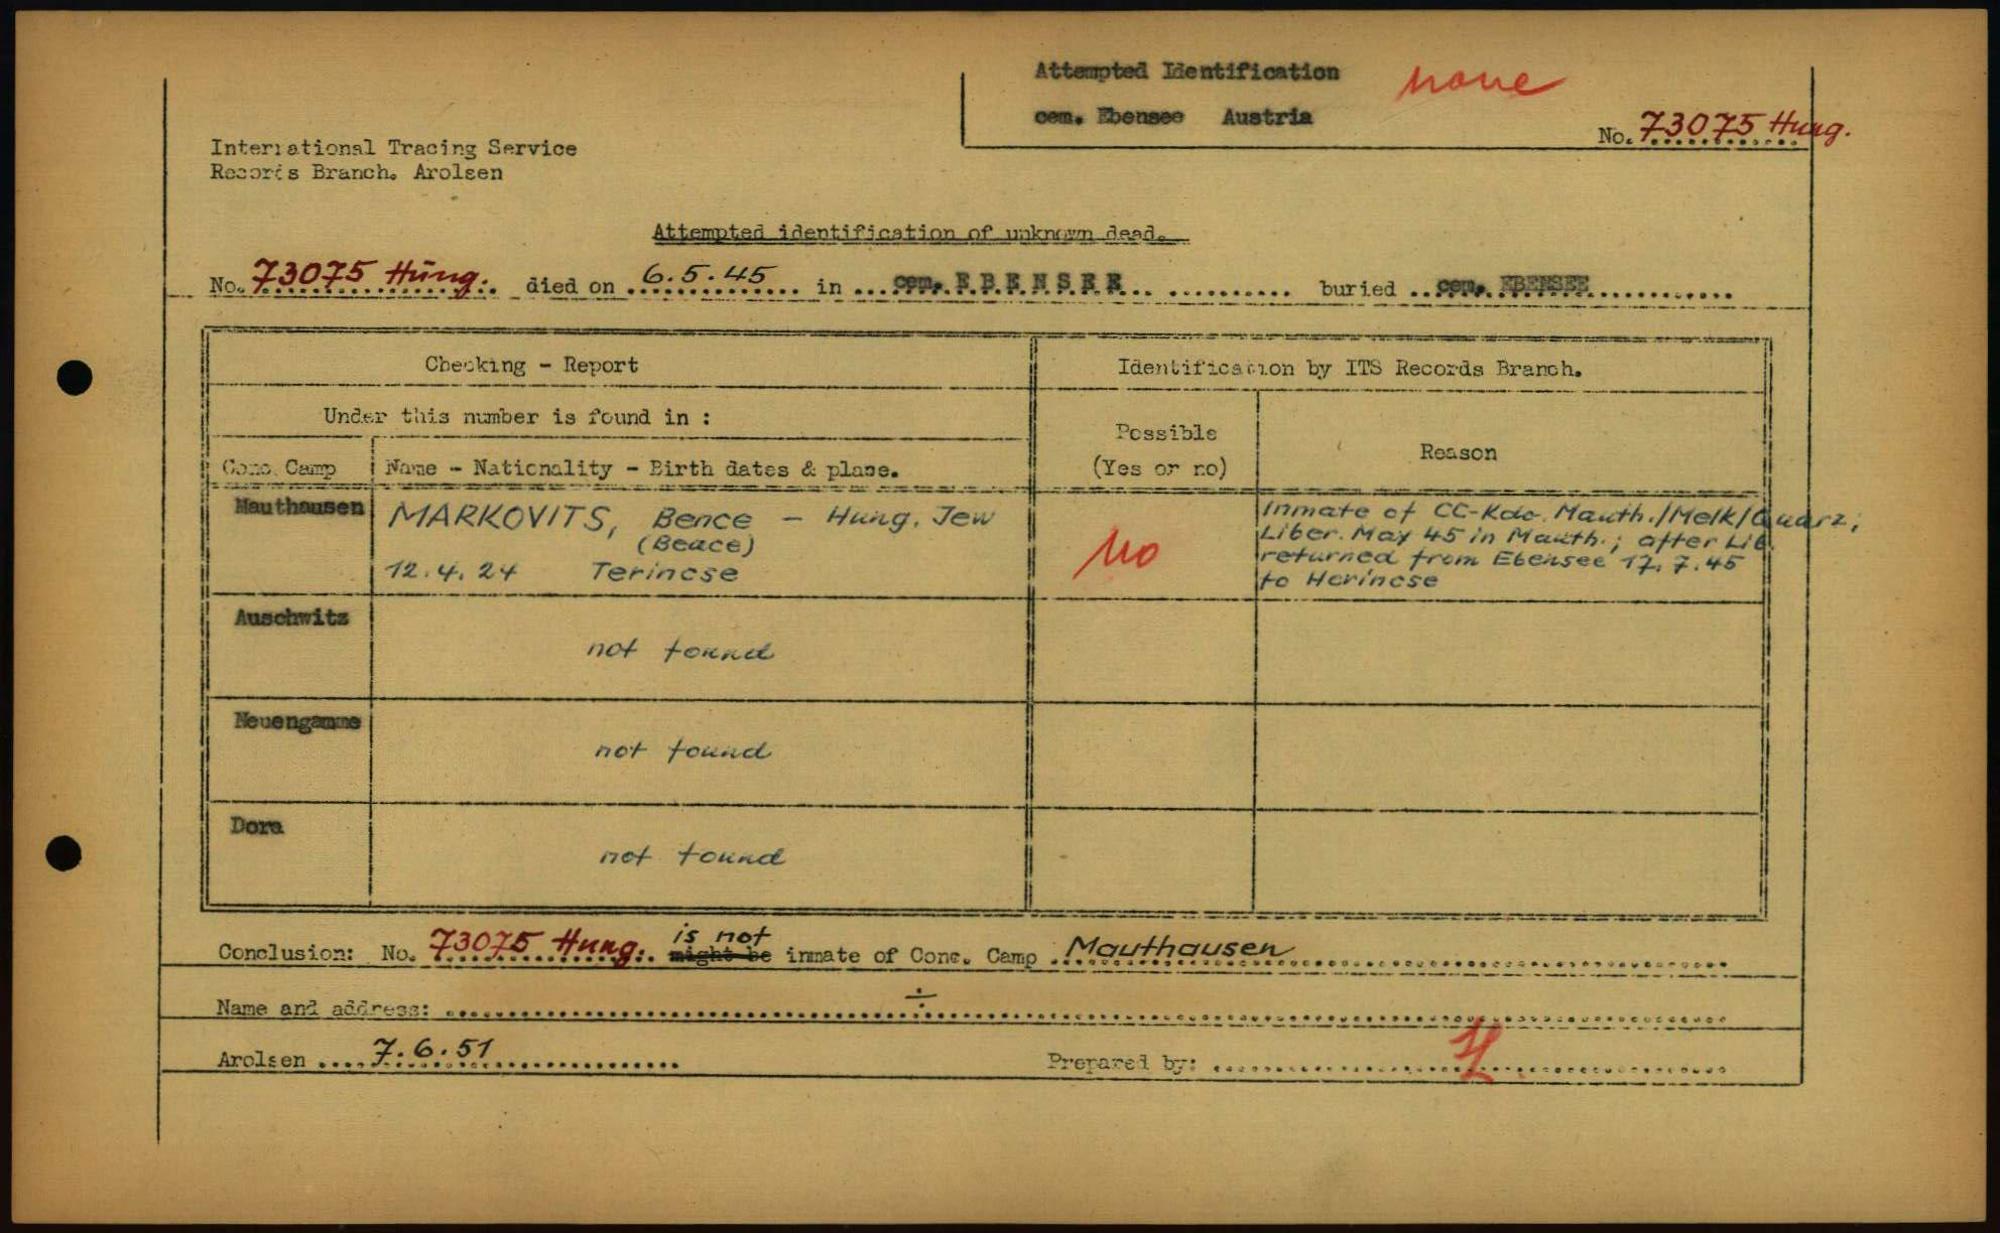 Attempted Identification none
cem. Ebensee Austria
No. 73075 Hung.
International Tracing Service
Records Branch. Arolsen
Attempted identification of unknown dead.
No. 73075 Hung. died on 6.5.45 in cem. EBENSEE buried cem. EBENSEE
Checking - Report
Identification by ITS Records Branch.
Under this number is found in :
Possible
(Yes or no)
Reason
Conc. Camp
Name - Nationality - Birth dates & place.
Mauthausen
MARKOVITS, Bence - Hung. Jew
(Beace)
12.4.24 Terincse
No
Inmate of CC-Kdo. Mauth./Melk/Quarz;
Liber. May 45 in Mauth.; after Lib.
returned from Ebensee 17.7.45
to Herincse
Auschwitz
not found
Neuengamme
not found
Dora
not found
is not
Conclusion: No. 73075 Hung. might be inmate of Conc. Camp Mauthausen
Name and address: ÷
Arolsen 7.6.51
Prepared by: